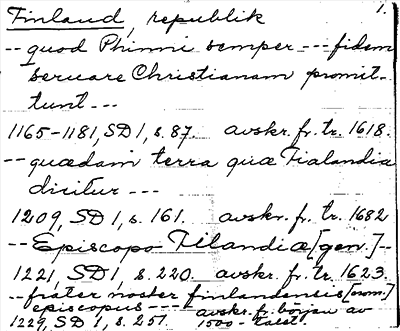 Finland, republik 1.
-- quod Phinni semper --- fidem
seruare Christianam promit-
tunt ---
1165-1181, SD 1, s. 87. avskr. fr. tr. 1618.
-- quædam terra quæ Fialandia
dicitur ---
1209, SD 1, s. 161. avskr. fr. tr. 1682
-- Episcopo Filandiæ [gen.] --
1221, SD 1, s. 220. avskr. fr. tr. 1623.
-- frater noster finlandensis [nom.]
episcopus --- avskr. f. början av
1229, SD 1, s. 251. 1500-talet.